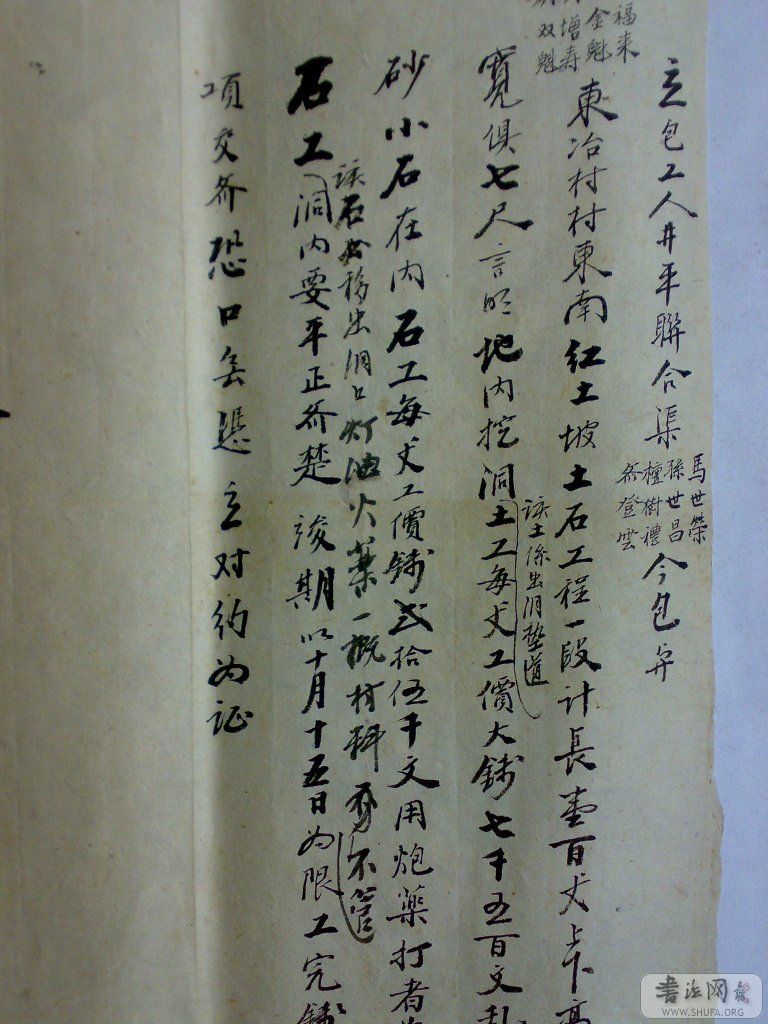 立包工人井平聯合渠
馬世榮
孫世昌
檀樹禮
齐登雲
今包弁
福来
金魁
增寿
双魁
東冶村村東南紅土坡土石工程一段計長壹百丈上下高
寬俱七尺言明地内挖洞土工每丈工價大錢七千五百文乱
該土係出洞墊道
砂小石在内石工每丈工價錢弍拾伍千文用炮藥打者为
石工洞内要平正齐楚竣期以十月十五日为限工完錢
該石移出洞口灯油火藥一概材料不管
項交齐恐口無憑立对约为证
书法网
WWW.SHUFA.ORG